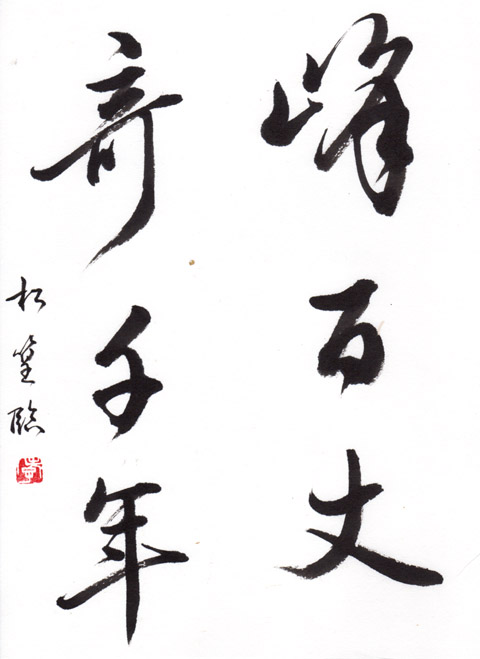 峰百丈
奇千年
松篁臨